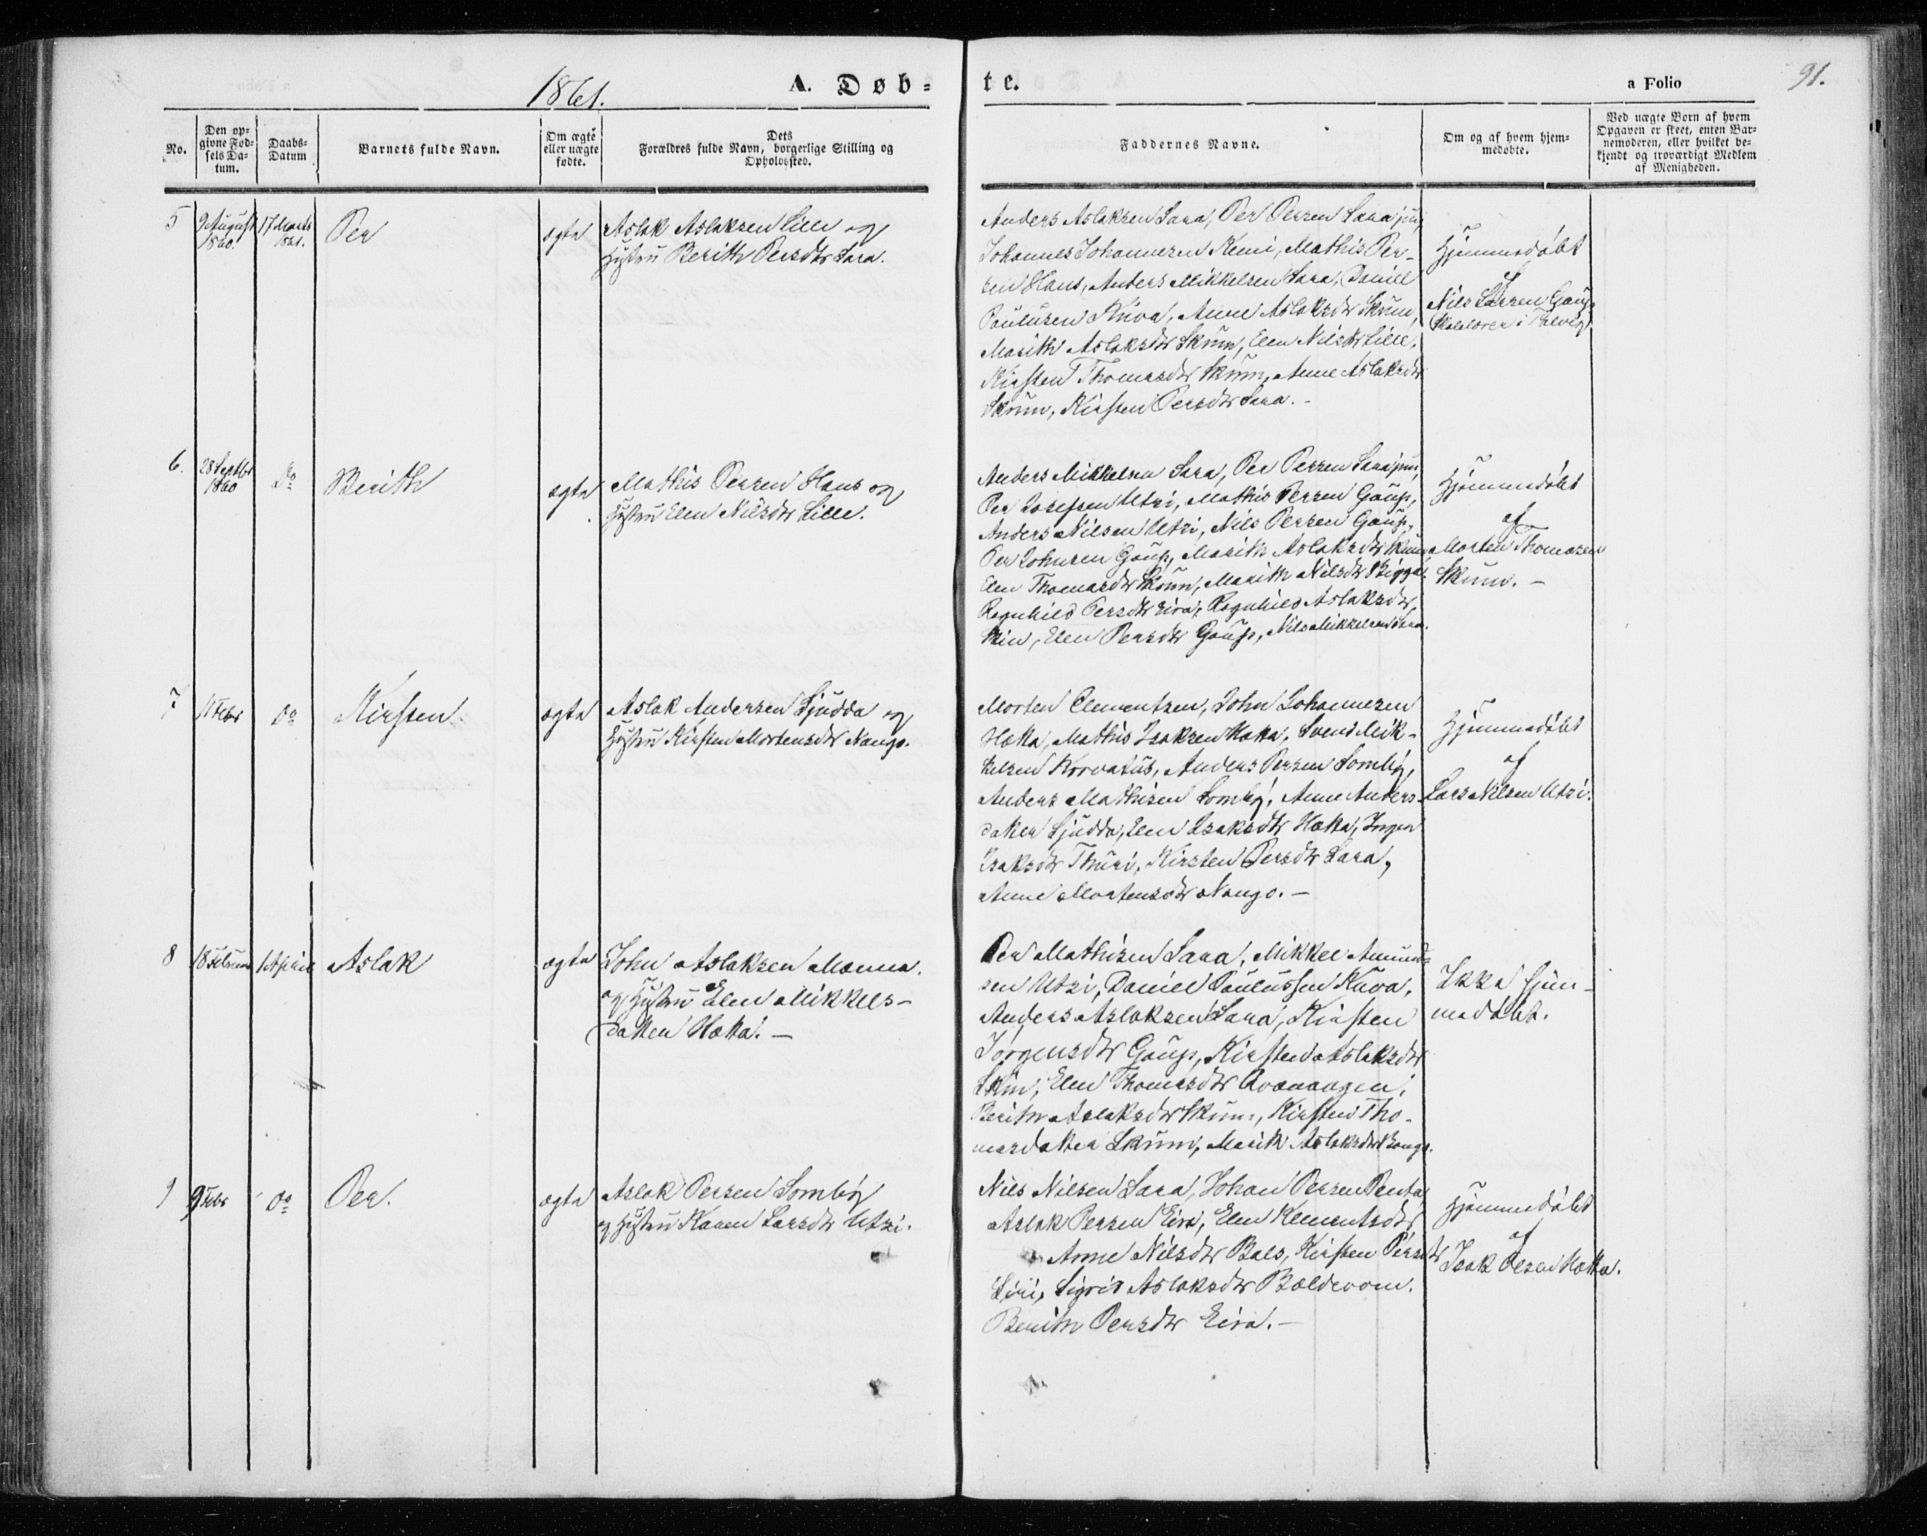 1861.
A. Døb-
te.
a Folio
91.
No.
Den op-
givne Fød-
sels Da-
tum.
Daabs-
Datum
Barnets fulde Navn.
Om ægte
eller uægte
fødte.
Dets
Forældres fulde Navn, borgerlige Stilling og
Opholdssted.
Faddernes Navne.
Om og af hvem hjem-
medøbte.
Ved uægte Born af hvem
Opgaven er skeet, enten Bar-
nemoderen, eller hvilket be-
kjendt og troværdigt Medlem
af Menigheden.
5
9 August
1860.
17 Marts
1861.
Per
ægte
Aslak Aslaksen Lille og
Hustru Berith Persdtr Sara.
Anders Aslaksen Sara, Per Persen Sara jun,
Johannes Johannesen Kemi, Mathis Per-
sen Hans, Anders Mikkelsen Sara, Daniel
Paulusen Kuva, Anne Aslaksdtr Skum,
Marith Aslaksdtr Skum, Elen Nilsdtr Lille,
Kirsten Thomasdtr Skum, Anne Aslaksdtr
Skum, Kirsten Persdtr Sara.-
Hjemmedøbt
af
Nils Larsen Gaup,
Skolelærer i Talvig
6.
28 Septbr
1860
Do
Berith
ægte
Mathis Persen Hans og
Hustru Elen Nilsdtr Lille.
Anders Mikkelsen Sara, Per Persen Sara jun,
Per Josefsen Utzi, Mathis Persen Gaup,
Anders Nilsen Utzi, Nils Persen Gaup,
Per Johnsen Gaup, Marith Aslaksdtr Skum
Elen Thomasdtr Skum, Marith Nilsdtr Bigga,
Ragnhild Persdtr Eira, Ragnhild Aslaksdtr
Kin, Elen Persdtr Gaup, Nils Mikkelsen Sara.
Hjemmedøbt
af
Morten Thomasen
Skum.-
7
11 Febr
Do
Kirsten
ægte
Aslak Andersen Sjudda og
Hustru Kirsten Mortensdtr Nango.
Morten Clementsen, John Johannesen
Hætta, Mathis Isaksen Hætta, Svend Mik-
kelsen Korvatus, Anders Persen Somby,
Anders Mathisen Somby, Anne Anders-
datter Sjudda, Elen Isaksdtr Hætta, Inger
Isaksdtr Thuri, Kirsten Persdtr Sara,
Anne Mortensdtr Nango.-
Hjemmedøbt
af
Lars Nilsen Utzi.
8
18 Februar
1 April
Aslak
ægte
John Aslaksen Mænna.
og Hustru Elen Mikkels-
datter Hætta.-
Per Mathisen Sara, Mikkel Amund-
sen Utzi, Daniel Paulussen Kuva,
Anders Aslaksen Sara, Kirsten
Jørgensdtr Gaup, Kirsten Aslaksdtr
Skin, Elen Thomasdtr Qvænangen,
Berith Aslaksdtr Skum, Kirsten Tho-
masdatter Skum, Marith Aslaksdtr Bongo.
Ikke hjem-
medøbt.
9
9 Febr
Do
Per.
ægte
Aslak Persen Somby
og Hustru Karen Larsdtr Utzi.
Nils Nilsen Sara, Johan Persen Penta
Aslak Persen Eira, Elen Klementsdtr
Anne Nilsdtr Bals, Kirsten Persdtr
Siri, Sigrid Aslaksdtr Bældevom.
Berith Persdtr Eira.-
Hjemmedøbt
af
Isak Olsen Hætta.